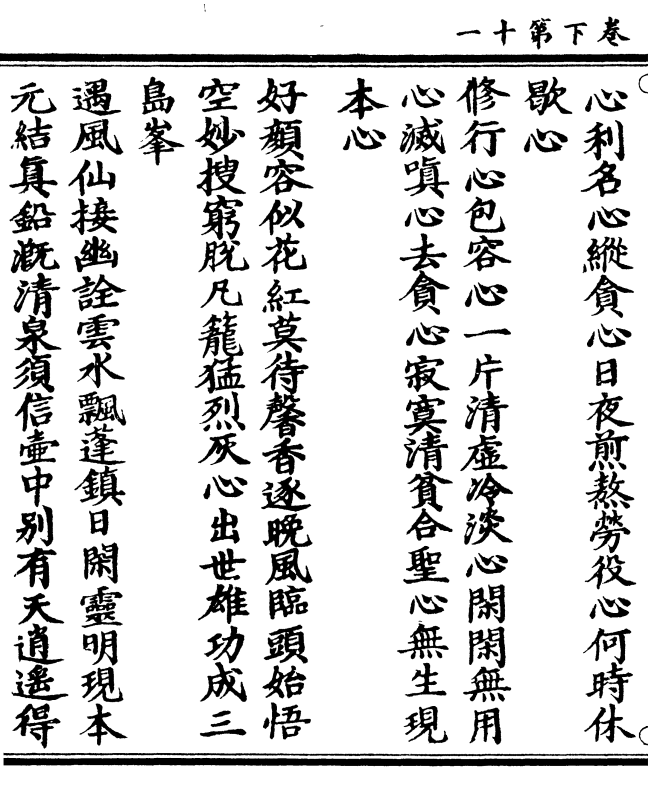 卷下第十一
心利名心縱貪心日夜煎熬勞役心何時休
歇心
修行心包容心一片清虛冷淡心閑閑無用
心滅嗔心去貪心寂寞清貧合聖心無生現
本心
好顏容似花紅莫待馨香逐晚風臨頭始悟
空妙搜窮脫凡籠猛烈灰心出世雄功成三
島峯
遇風仙接幽詮雲水飄蓬鎮日閑靈明現本
元結真鉛溉清泉須信壷中別有天逍遙得